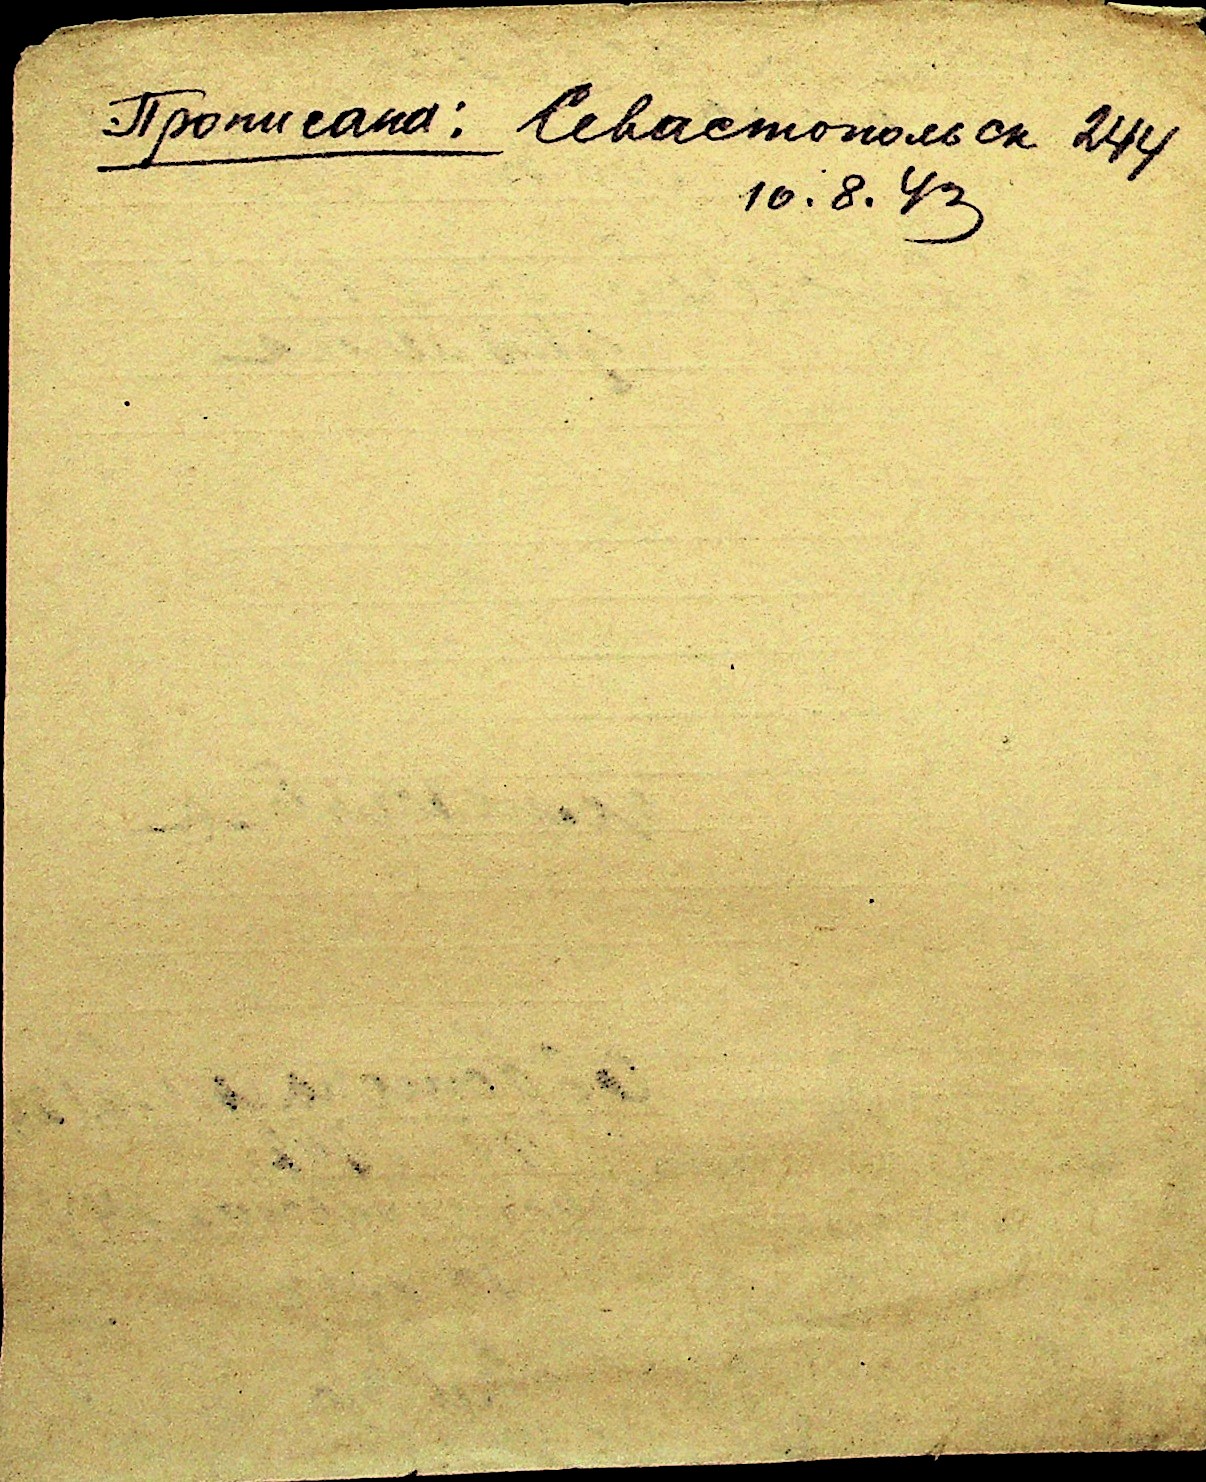 Прописана: Севастопольск 244
10.8.43